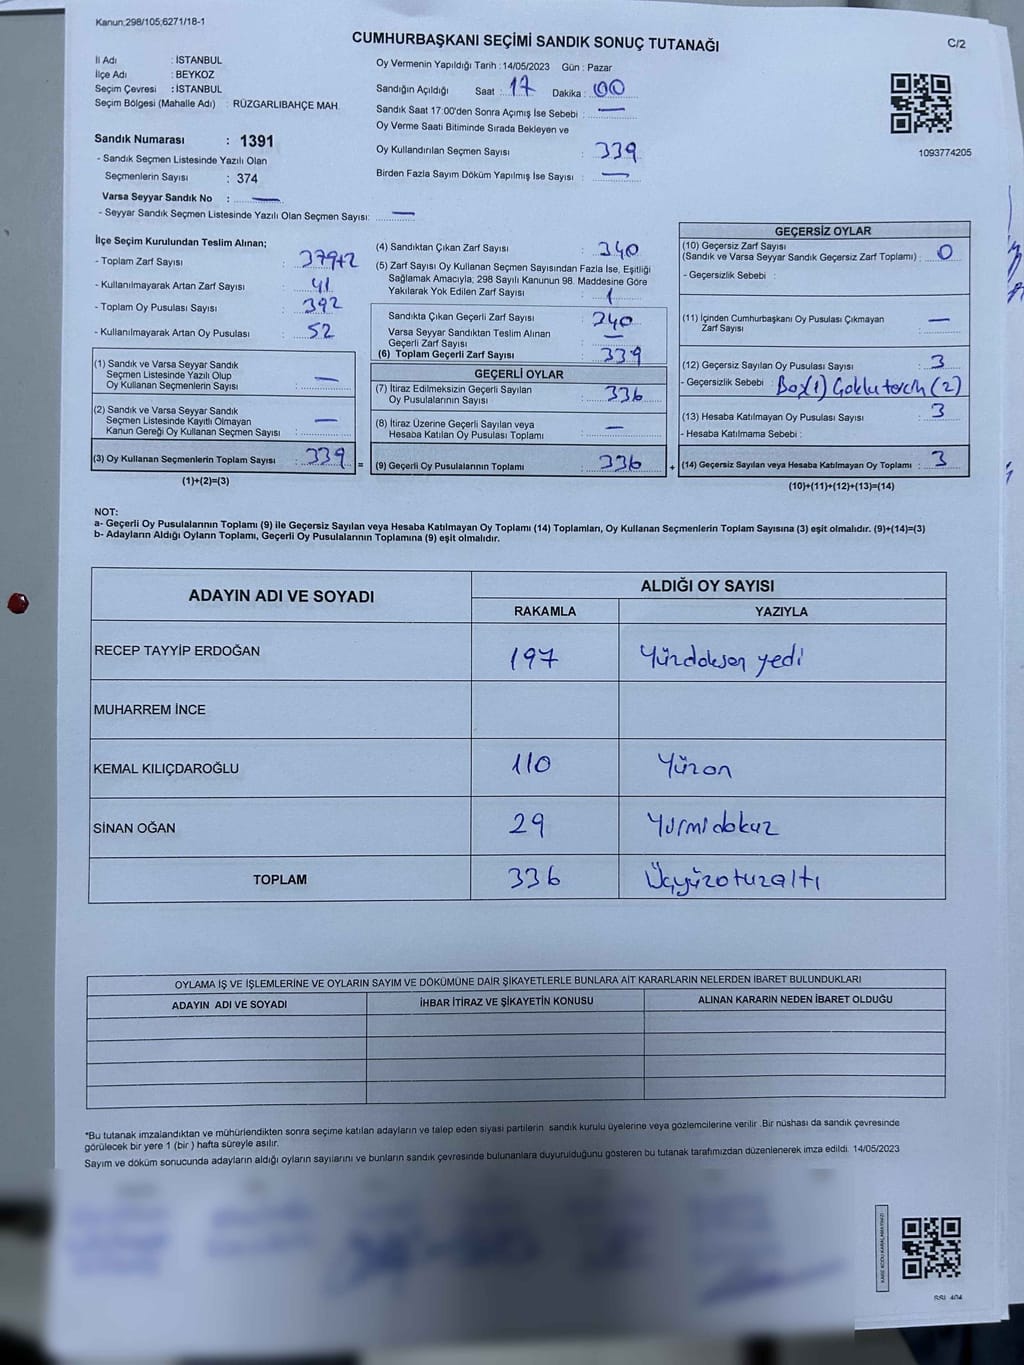 Kanun;298/105;6271/18-1
CUMHURBAŞKANI SEÇİMİ SANDIK SONUÇ TUTANAĞI
C/2
İl Adı : İSTANBUL
İlçe Adı : BEYKOZ
Seçim Çevresi : İSTANBUL
Seçim Bölgesi (Mahalle Adı) : RÜZGARLIBAHÇE MAH.
Sandık Numarası : 1391
- Sandık Seçmen Listesinde Yazılı Olan
Seçmenlerin Sayısı : 374
Varsa Seyyar Sandık No : —
- Seyyar Sandık Seçmen Listesinde Yazılı Olan Seçmen Sayısı: —
Oy Vermenin Yapıldığı Tarih : 14/05/2023 Gün : Pazar
Sandığın Açıldığı Saat : 17 Dakika : 00
Sandık Saat 17:00'den Sonra Açımış İse Sebebi : —
Oy Verme Saati Bitiminde Sırada Bekleyen ve
Oy Kullandırılan Seçmen Sayısı : 339
Birden Fazla Sayım Döküm Yapılmış İse Sayısı : —
1093774205
İlçe Seçim Kurulundan Teslim Alınan;
- Toplam Zarf Sayısı : 379+2
- Kullanılmayarak Artan Zarf Sayısı : 41
- Toplam Oy Pusulası Sayısı : 392
- Kullanılmayarak Artan Oy Pusulası : 52
(1) Sandık ve Varsa Seyyar Sandık
Seçmen Listesinde Yazılı Olup
Oy Kullanan Seçmenlerin Sayısı : —
(2) Sandık ve Varsa Seyyar Sandık
Seçmen Listesinde Kayıtlı Olmayan
Kanun Gereği Oy Kullanan Seçmen Sayısı : —
(3) Oy Kullanan Seçmenlerin Toplam Sayısı : 339 =
(1)+(2)=(3)
(4) Sandıktan Çıkan Zarf Sayısı : 340
(5) Zarf Sayısı Oy Kullanan Seçmen Sayısından Fazla İse, Eşitliği
Sağlamak Amacıyla; 298 Sayılı Kanunun 98. Maddesine Göre
Yakılarak Yok Edilen Zarf Sayısı : 1
Sandıkta Çıkan Geçerli Zarf Sayısı : 240
Varsa Seyyar Sandıktan Teslim Alınan
Geçerli Zarf Sayısı : —
(6) Toplam Geçerli Zarf Sayısı : 339
GEÇERLİ OYLAR
(7) İtiraz Edilmeksizin Geçerli Sayılan
Oy Pusulalarının Sayısı : 336
(8) İtiraz Üzerine Geçerli Sayılan veya
Hesaba Katılan Oy Pusulası Toplamı : —
(9) Geçerli Oy Pusulalarının Toplamı : 336 +
GEÇERSİZ OYLAR
(10) Geçersiz Zarf Sayısı
(Sandık ve Varsa Seyyar Sandık Geçersiz Zarf Toplamı) : 0
- Geçersizlik Sebebi :
(11) İçinden Cumhurbaşkanı Oy Pusulası Çıkmayan
Zarf Sayısı : —
(12) Geçersiz Sayılan Oy Pusulası Sayısı : 3
- Geçersizlik Sebebi : Boş(1) Çoklu tercih (2)
(13) Hesaba Katılmayan Oy Pusulası Sayısı : 3
- Hesaba Katılmama Sebebi :
(14) Geçersiz Sayılan veya Hesaba Katılmayan Oy Toplamı : 3
(10)+(11)+(12)+(13)=(14)
NOT:
a- Geçerli Oy Pusulalarının Toplamı (9) ile Geçersiz Sayılan veya Hesaba Katılmayan Oy Toplamı (14) Toplamları, Oy Kullanan Seçmenlerin Toplam Sayısına (3) eşit olmalıdır. (9)+(14)=(3)
b- Adayların Aldığı Oyların Toplamı, Geçerli Oy Pusulalarının Toplamına (9) eşit olmalıdır.
ADAYIN ADI VE SOYADI ALDIĞI OY SAYISI
RAKAMLA YAZIYLA
RECEP TAYYİP ERDOĞAN 197 Yüzdoksan yedi
MUHARREM İNCE
KEMAL KILIÇDAROĞLU 110 Yüzon
SİNAN OĞAN 29 Yirmidokuz
TOPLAM 336 Üçyüzotuzaltı
OYLAMA İŞ VE İŞLEMLERİNE VE OYLARIN SAYIM VE DÖKÜMÜNE DAİR ŞİKAYETLERLE BUNLARA AİT KARARLARIN NELERDEN İBARET BULUNDUKLARI
ADAYIN ADI VE SOYADI İHBAR İTİRAZ VE ŞİKAYETİN KONUSU ALINAN KARARIN NEDEN İBARET OLDUĞU
*Bu tutanak imzalandıktan ve mühürlendikten sonra seçime katılan adayların ve talep eden siyasi partilerin sandık kurulu üyelerine veya gözlemcilerine verilir .Bir nüshası da sandık çevresinde
görülecek bir yere 1 (bir ) hafta süreyle asılır.
Sayım ve döküm sonucunda adayların aldığı oyların sayılarını ve bunların sandık çevresinde bulunanlara duyurulduğunu gösteren bu tutanak tarafımızdan düzenlenerek imza edildi. 14/05/2023